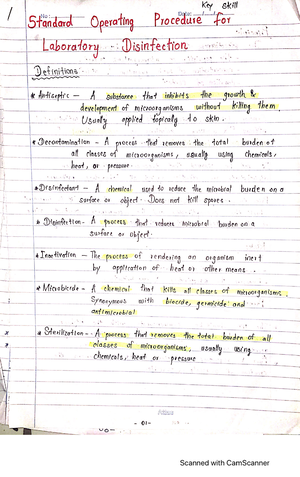 Key Skill
Standard Operating Procedure for
Laboratory Disinfection
Definitions
* Antiseptic - A substance that inhibits the growth &
development of microorganisms without killing them
Usually applied topically to skin.
* Decontamination - A process that removes the total burden of
all classes of microorganisms, usually using chemicals,
heat, or pressure
* Disinfectant - A chemical used to reduce the microbial burden on a
surface or object. Does not kill spores.
* Disinfection - A process that reduces microbial burden on a
surface or object.
* Inactivation - The process of rendering an organism inert
by application of heat or other means.
* Microbicide - A chemical that kills all classes of microorganisms.
Synonymous with biocide, germicide and
antimicrobial
* Sterilization - A process that removes the total burden of all
classes of microorganisms, usually using
chemicals, heat or pressure
- 01 -
Scanned with CamScanner